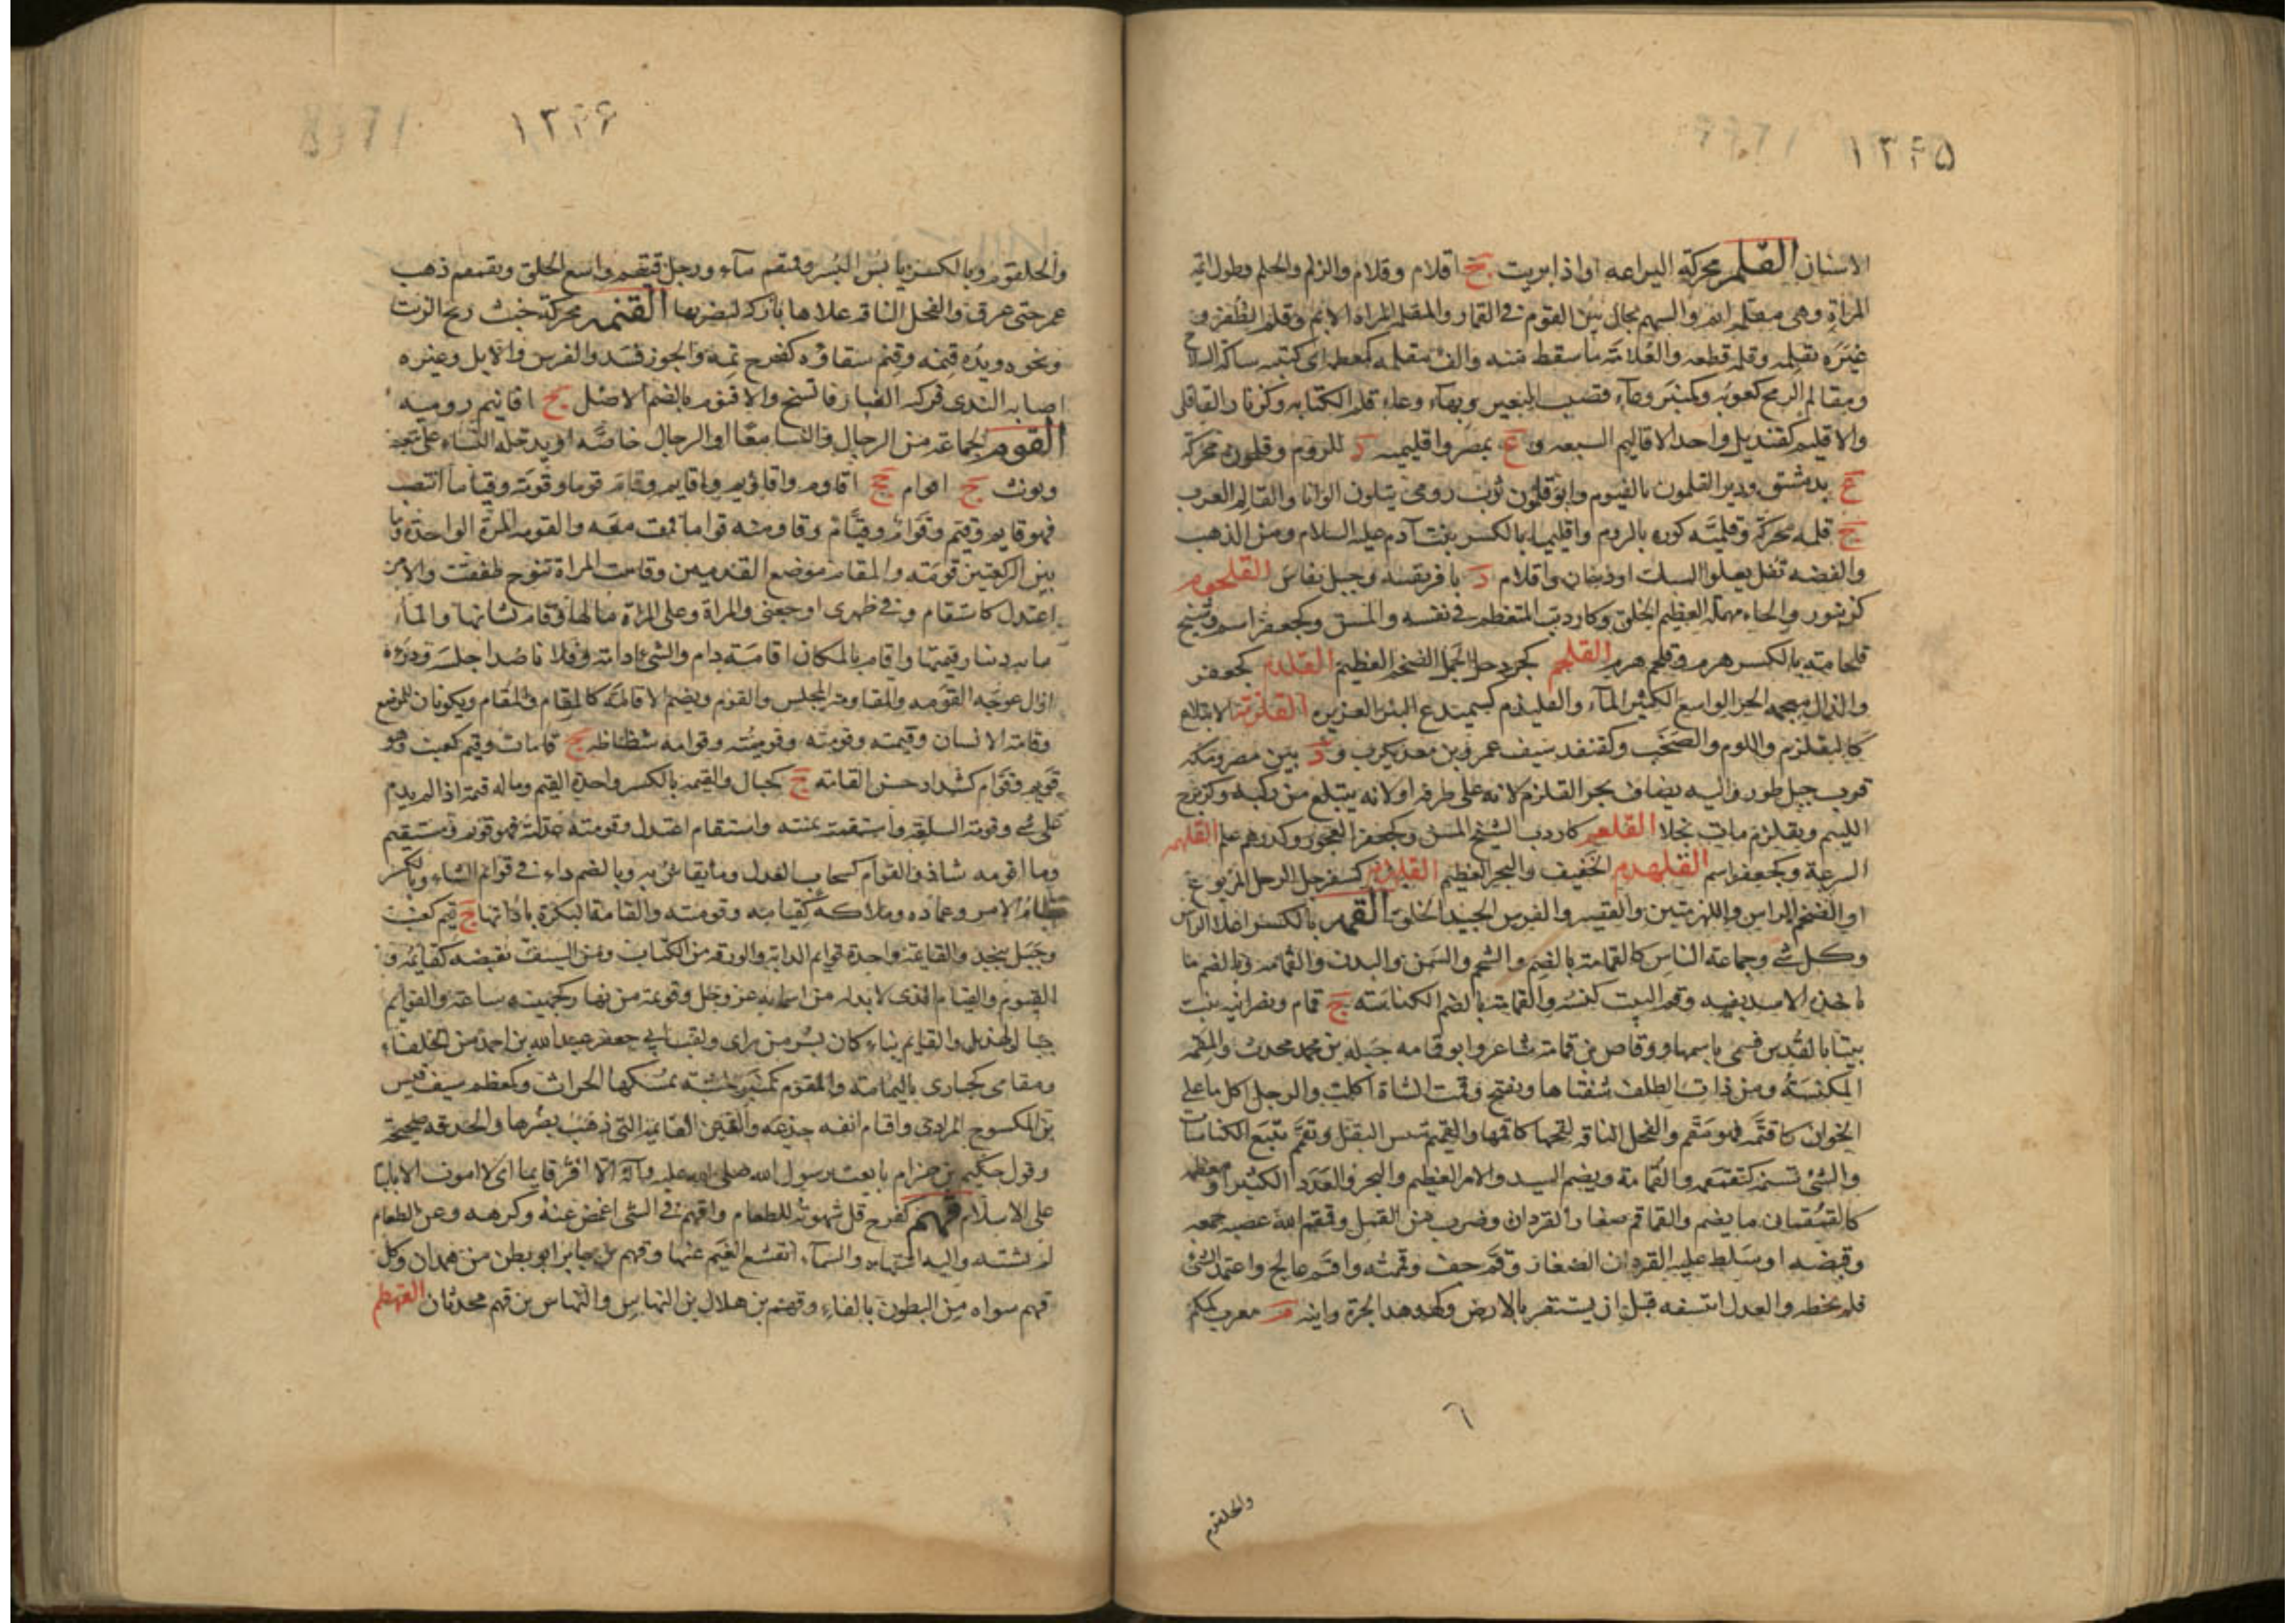 ١٣٤٥
الاسنان القلم محركة اليراعه او اذا بريت ج اقلام وقلام والزلم والجلم وطول ايمة
المراة وهى مقلمة ايم والسهم يجال بين القوم فى القمار والمقلمة المراة الايم وقلم الظفر و
غيره يقلمه وقلمه قطعه والقلامة ما سقط منه والف مقلمه كمعظمة اى كتيبه شاكة السلاح
ومقالم الرمح كعوبه وكمنبر وعاء قضيب البعير وبهاء وعاء قلم الكتابه وكزنار القاقلى
والاقليم كقنديل واحد الاقاليم السبعه و ع بمصر واقليميه د للروم وقلمون محركة
ع بدمشق ودير القلمون بالفيوم وابو قلمون ثوب رومى يتلون الوانا والقالم العزب
ج قلمه محركة وقلميه كوره بالروم واقليميا بالكسر بنت آدم عليه السلام ومن الذهب
والفضه ثفل يعلو السبك او دخان واقلام د بافريقيه وجبل بفاس القلحوم
كزنبور والحاء مهملة العظيم الخلق وكاردب المتعظم فى نفسه والمسن وكجعفر اسم وشيخ
قلحامة بالكسر هرم وقلحم هرم القلخم كجردحل الجمل الضخم العظيم القلذم كجعفر
والذال معجمه البحر الواسع الكثير الماء والقليذم كسميدع البئر العزيره القلزمة الابتلاع
كالتقلزم واللوم والصخب وكقنفد سيف عمرو بن معديكرب و د بين مصر ومكة
قرب جبل طور واليه يضاف بحر القلزم لانه على طرفه او لانه يبتلع من ركبه وكزبرج
اللئيم وتقلزم مات بخلا القلعم كاردب الشيخ المسن وكجعفر العجوز وكدرهم علم القلهمه
السرعة وكجعفر اسم القلهدم الخفيف والبحر العظيم القلهزم كسفرجل الرجل المربوع
او الضخم الراس واللهزمتين والقصير والفرس الجيد الخلق القمه بالكسر اعلا الراس
وكل شئ وجماعة الناس كالقمامة بالضم والشحم والسمن والبدن والقامه وبالضم ما
ياخذه الاسد بفيه وقم البيت كنسه والقمامة بالضم الكناسه ج قمام ونصرانيه بنت
بيتا بالقدس فسمى باسمها ووقاص بن قمامة شاعر وابو قمامه جبله بن محمد محدث والمقمه
المكنسة ومن ذات الظلف شفتاها ويفتح وقمت الشاة اكلت والرجل اكل ما على
الخوان كاقتمه فهو مقم والفحل الناقه لقحها كاقمها والقميم يبس البقل وتقمم تتبع الكناسات
والشئ تسنمه كتقمقمه والقمقام ويضم السيد والامر العظيم والبحر والعدد الكثير او معظمه
كالقمقمان ما يضم والقماقم صغار القردان وضرب من القمل وقمقم الله عصبه جمعه
وقبضه او سلط عليه القردان الصغار وقم جف وقمته واقتم عالج واعتمد الشئ
فلم يخطه والعدل انتسفه قبل ان يستقر بالارض وكهدهد الجرة وآنيه م معرب كمكم
والحلقوم
١٣٤۶
والحلقوم وبالكسر يابس البسر وقمقم ماء ورجل قيقم واسع الحلق وتقمقم ذهب
غمر حتى غرق والفحل الناقه علاها باركه ليضربها القنمه محركة خبث ريح الزيت
ونحوه ويده قنمه وقنم سقاؤه كفرح تمه والجوز فسد والفرس والابل وغيره
اصابه الندى فركبه الغبار فاتسخ والاقنوم بالضم الاصل ج اقانيم روميه
القوم الجماعة من الرجال والنساء معا او الرجال خاصة او يدخله النساء على تبعية
ويونث ج اقوام جج اقاوم واقاويم واقايم وقام قوما وقومة وقياما انتصب
فهو قايم وقيم وقوام وقيام وقاومته قواما قمت معه والقومة المرة الواحدة وما
بين الركعتين قومة والمقام موضع القدمين وقامت المراة تنوح طفقت والامر
اعتدل كاستقام وفى ظهرى اوجعنى والمراة وعلى المراة مالها وقام بشانها والماء
مايه دينار قيمتها واقام بالمكان اقامة دام والشئ ادامه وفلانا ضد اجلسه ودرؤه
ازال عوجه القومه والمقامة المجلس والقوم ويضم الاقامة كالمقام والمقام ويكونان للموضع
وقامة الانسان وقيمته وقومته وقوميته وقوامه شطاطه ج قامات وقيم كعنب وهو
قويم وقوام كشداد حسن القامه ج كجبال والقيمه بالكسر واحدة القيم وماله قيمة اذا لم يدم
على شئ وقومت السلعه واستقمته ثمنته واستقام اعتدل وقومته عدلته فهو قويم ومستقيم
وما اقومه شاذ والقوام كسحاب العدل وما يعاش به وبالضم داء فى قوائم الشاء وبالكسر
نظام الامر وعماده وملاكه كقيامه وقوميته والقامة البكرة باداتها ج قيم كعنب
وجبل بنجد والقايمة واحدة قوايم الدابه والورقه من الكتاب ومن السيف مقبضه كقايمه و
القيوم والقيام الذى لابد له من اسمايه عز وجل وقويمة من نهار كجهينه ساعة والقوايم
جبال لهذيل والقايم بناء كان بسر من راى ولقب ابي جعفر عبد الله بن احمد من الخلفاء
ومقامى كحبارى باليمامة والمقوم كمنبر خشبة يمسكها الحراث وكمعظم سيف قيس
بن المكسوح المرادى واقام انفه جدعه والعين القايمة التى ذهب بصرها والحدقه صحيحة
وقول حكيم بن حزام بايعت رسول الله صلى الله عليه وآله الا اخر قايما اى لا اموت الا ثابتا
على الاسلام قهم كفرح قل شهوته للطعام واقهم فى الشئ اغمض عنه وكرهه وعن الطعام
لم يشتهه واليه اشتهاه والسماء انقشع الغيم عنها وقهم بن جابر ابو بطن من همدان وكل
فهم سواه من البطون بالفاء وقهم بن هلال بن النهاس والنهاس بن قهم محدثان القهطم